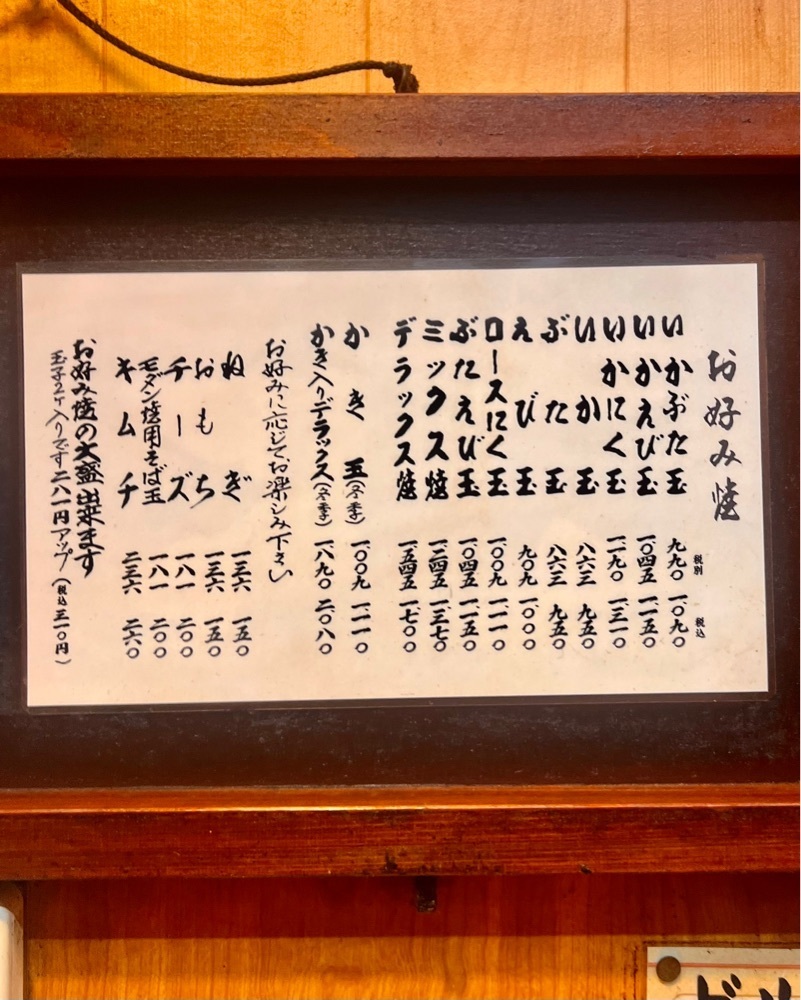 お好み焼
税別 税込
いかぶた玉 九九〇 一、〇九〇
いかえび玉 一、〇四五 一、一五〇
いかにく玉 一、一九〇 一、三一〇
いか玉 八六三 九五〇
ぶた玉 八六三 九五〇
えび玉 九〇九 一、〇〇〇
ロースにく玉 一、〇〇九 一、一一〇
ぶたえび玉 一、〇四五 一、一五〇
ミックス焼 一、二四五 一、三七〇
デラックス焼 一、五四五 一、七〇〇
かき玉(冬季) 一、〇〇九 一、一一〇
かき入りデラックス(冬季) 一、八九〇 二、〇八〇
お好みに応じてお楽しみ下さい
ねぎ 一三六 一五〇
おもち 一三六 一五〇
チーズ 一八一 二〇〇
モダン焼用そば玉 一八一 二〇〇
キムチ 二三六 二六〇
お好み焼の大盛出来ます
玉子2ヶ入りです 二八一円アップ(税込三一〇円)